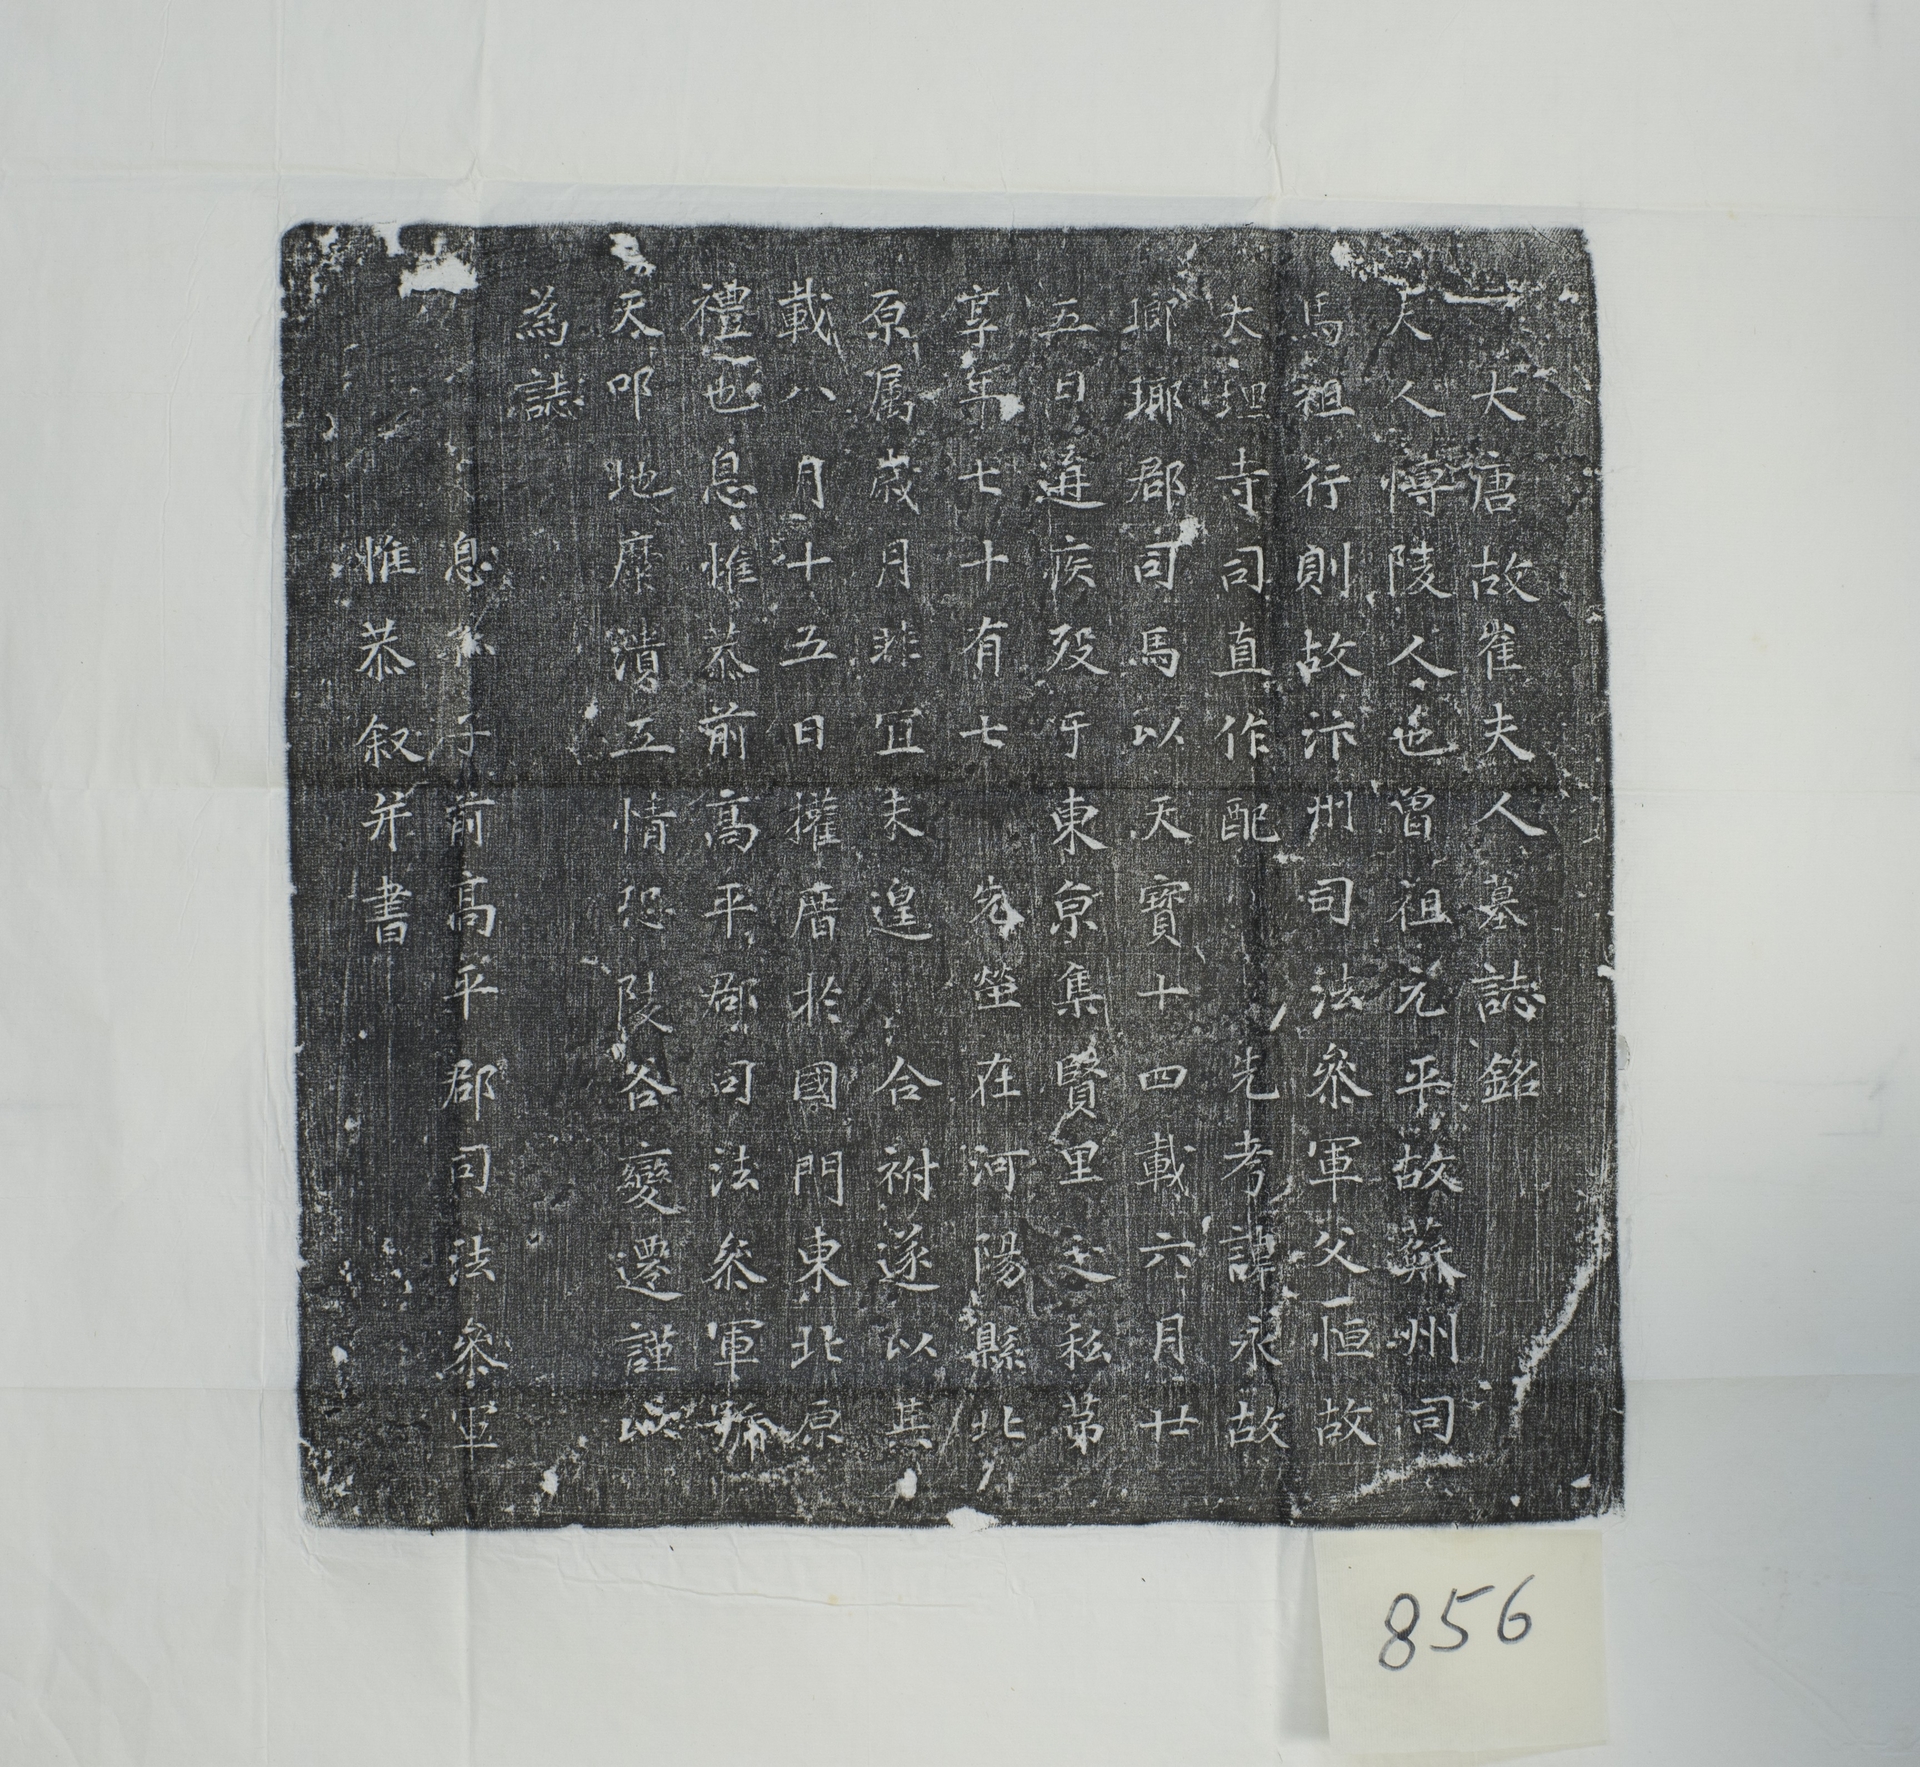 大唐故崔夫人墓誌銘
夫人博陵人也曾祖元平故蘇州司
馬祖行則故汴州司法叅軍父恒故
大理寺司直作配 先考諱永故
瑯瑘郡司馬以天寶十四載六月廿
五日遘疾歿于東京集賢里之私第
享年七十有七 先塋在河陽縣北
原属歲月非宜未遑 合祔遂以其
載八月十五日攉厝於國門東北原
禮也息惟恭前高平郡司法叅軍號
天叩地糜潰五情恐陵谷變遷謹以
為誌
息 子前高平郡司法叅軍
惟恭叙并書
856